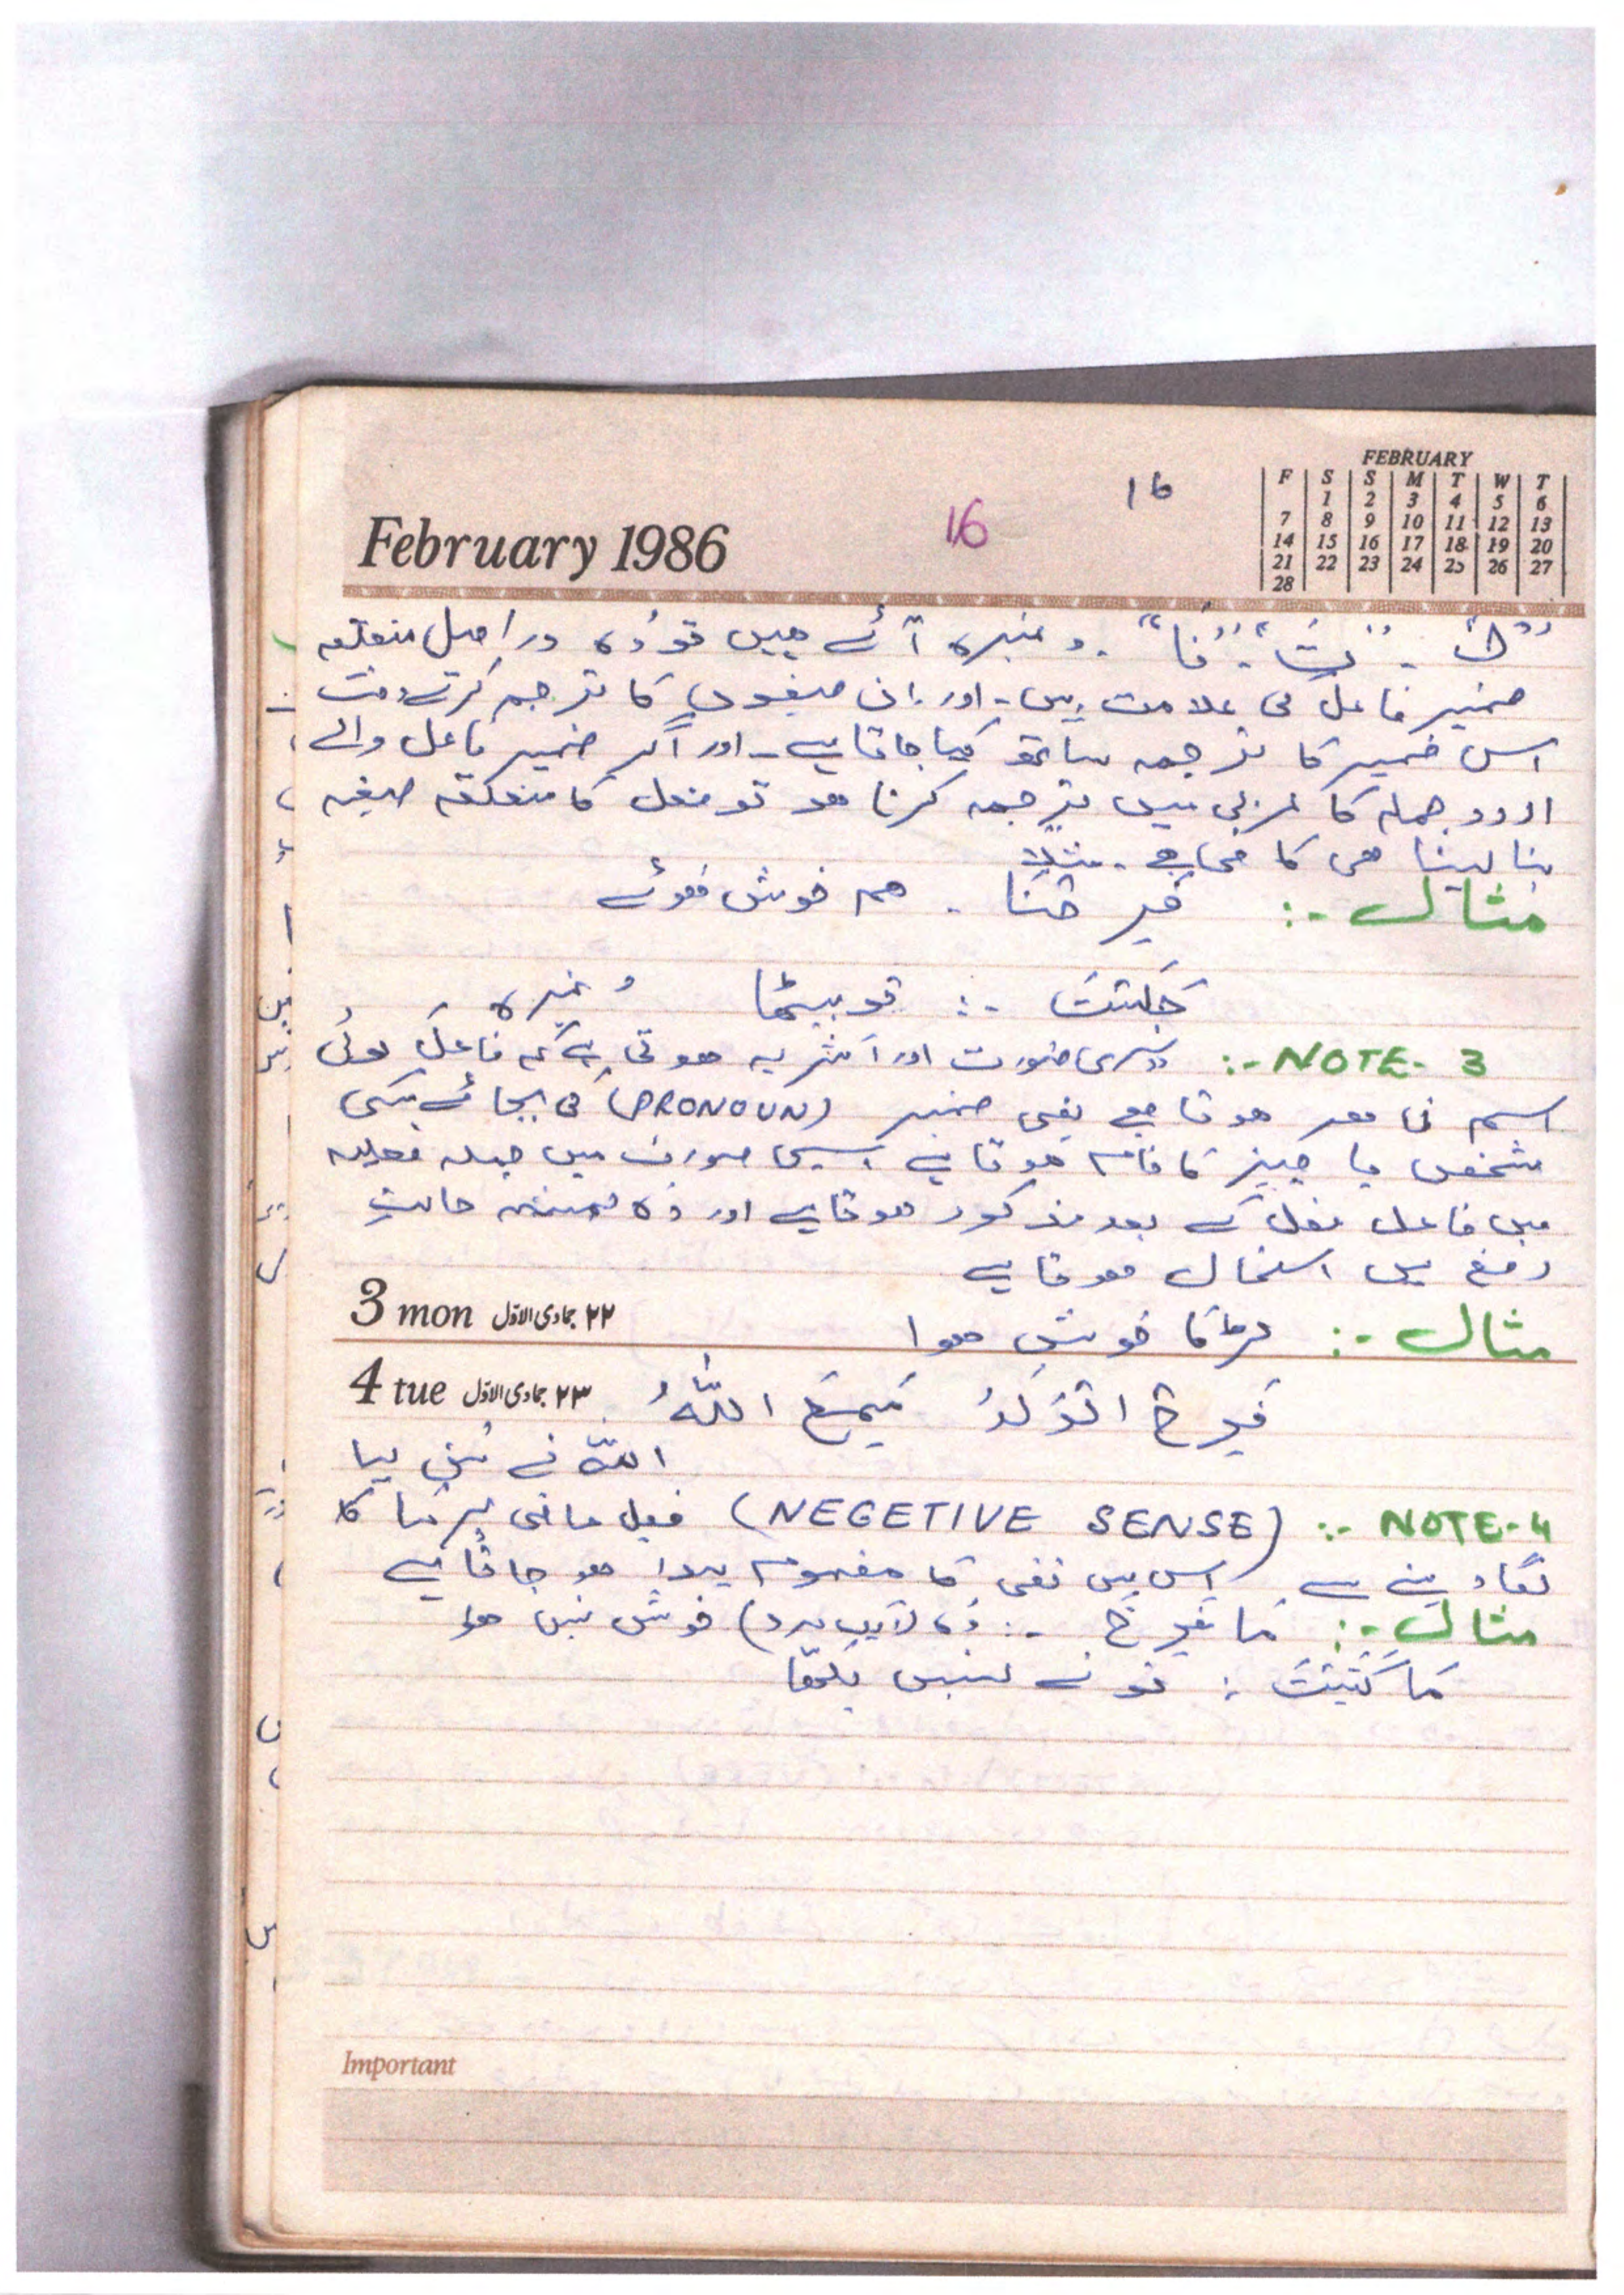 February 1986
16
16
FEBRUARY
F S S M T W T
1 2 3 4 5 6
7 8 9 10 11 12 13
14 15 16 17 18 19 20
21 22 23 24 25 26 27
28
"ت" - "نَا" - وغیرہ آئے ہیں تو وہ دراصل متعلقہ
ضمیر فاعل کی علامت ہیں - اور ان صیغوں کا ترجمہ کرتے وقت
اس ضمیر کا ترجمہ ساتھ کیا جاتا ہے - اور اگر ضمیر فاعل والے
اردو جملہ کا عربی میں ترجمہ کرنا ھو تو فعل کا متعلقہ صیغہ
بنا لینا ھی کافی ہے - مثلاً
مثال :- فَرِحْنَا - ھم خوش ھوئے
جَلَسْتَ :- تو بیٹھا وغیرہ
NOTE - 3 :- دوسری صورت اور اکثر یہ ھوتی ہے کہ فاعل کوئی
اسم ظاھر ھوتا ہے یعنی ضمیر (PRONOUN) کی بجائے کسی
شخص یا چیز کا نام ھوتا ہے ایسی صورت میں جملہ فعلیہ
میں فاعل فعل کے بعد مذکور ھوتا ہے اور وہ ھمیشہ حالتِ
رفع میں استعمال ھوتا ہے
3 mon ۲۲ جمادی الاوّل
مثال :- لڑکا خوش ھوا
4 tue ۲۳ جمادی الاوّل
فَرِحَ الْوَلَدُ سَمِعَ اللّٰهُ
اللّٰہ نے سُن لیا
NOTE - 4 :- (NEGETIVE SENSE) فعل ماضی پر مَا کا
لگا دینے سے اس میں نفی کا مفہوم پیدا ھو جاتا ہے
مثال :- مَا فَرِحَ :- وہ (ایک مرد) خوش نہیں ھوا
مَا كَتَبْتَ : تو نے نہیں لکھا
Important